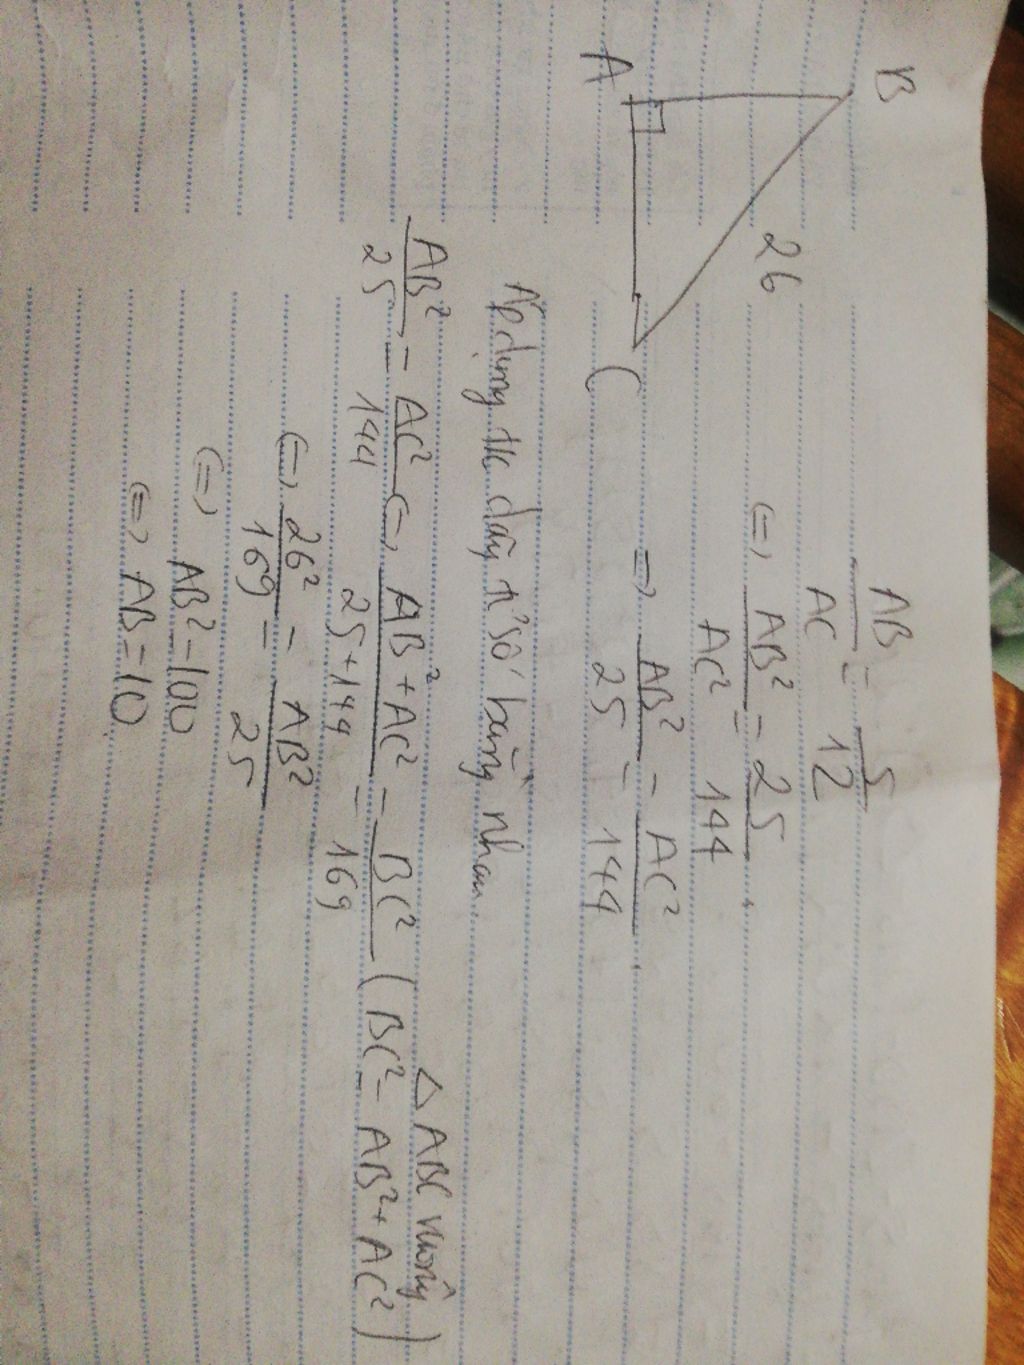 B
A
26
C
AB/AC = 5/12
(=) AB²/AC² = 25/144
=) AB²/25 = AC²/144
Áp dụng t/c dãy tỉ số bằng nhau
AB²/25 = AC²/144 (=) AB²+AC²/25+144 = BC²/169 (BC² = AB² + AC²)
△ABC vuông
(=) 26²/169 = AB²/25
(=) AB² = 100
(=) AB = 10